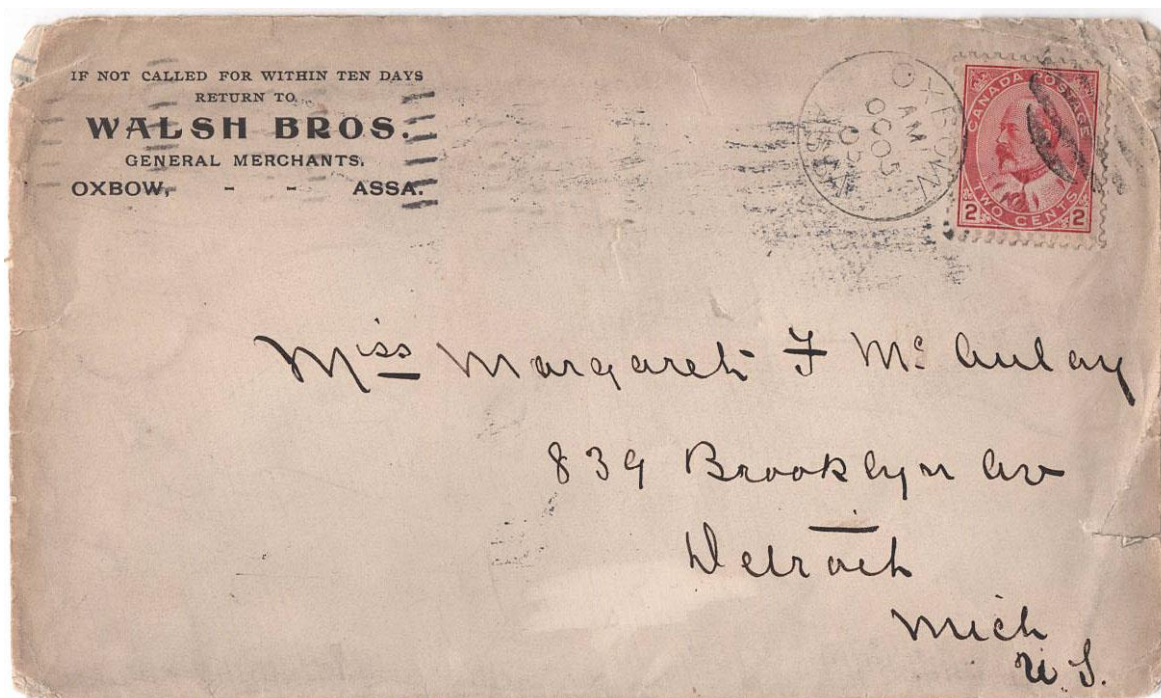 IF NOT CALLED FOR WITHIN TEN DAYS
RETURN TO
WALSH BROS.
GENERAL MERCHANTS.
OXBOW, - - ASSA.
OXBOW
AM
OC 05
ASSA
CANADA POSTAGE
2 TWO CENTS 2
Miss Margaret F McAulay
839 Brooklyn Av
Detroit
Mich
U.S.